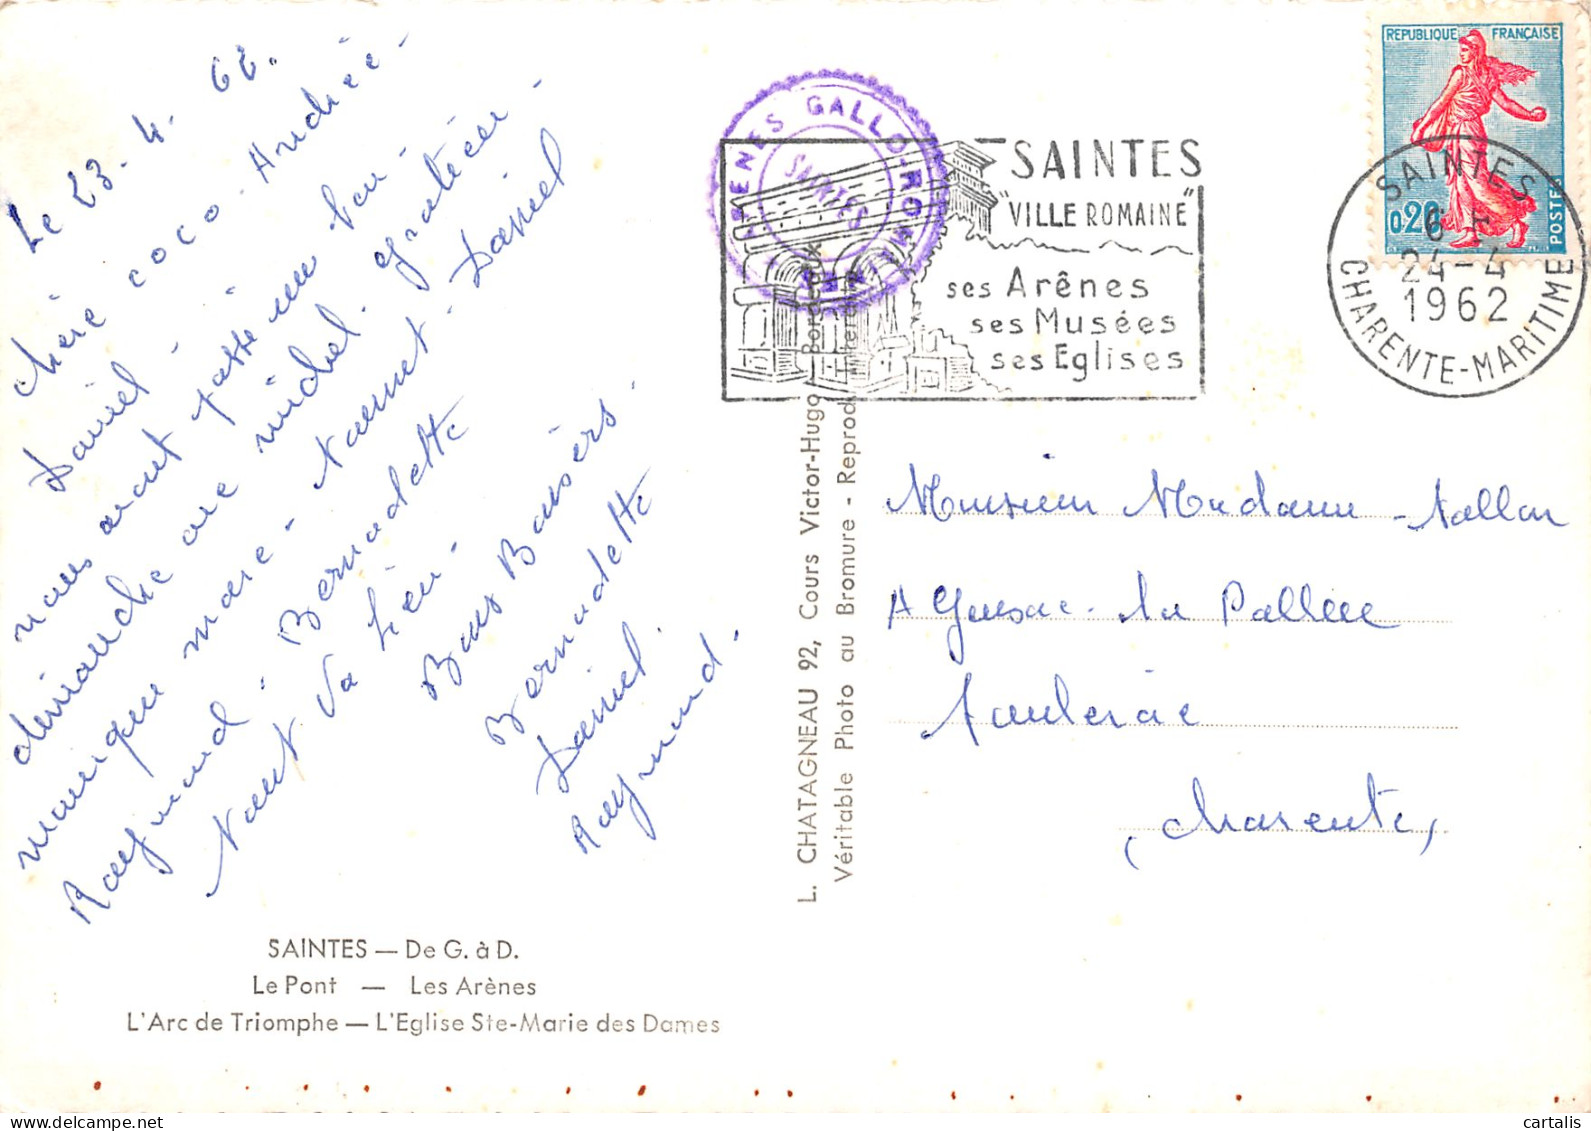 Le 23.4.62.
chère coco. Andrée -
Daniel -
nous avons passé un bon
dimanche ave michel. gratien -
manque mare - Nannet - Daniel
Raymond. Bernadette
Nout va bien -
Bons Baisers
Bernadette
Daniel.
Raymond.
SAINTES — De G. à D.
Le Pont — Les Arènes
L'Arc de Triomphe — L'Eglise Ste-Marie des Dames
L. CHATAGNEAU 92, Cours Victor-Hugo, Bordeaux
Véritable Photo au Bromure - Reprod. Interdite
ARÈNES GALLO-ROMAINES
SAINTES
SAINTES
"VILLE ROMAINE"
ses Arênes
ses Musées
ses Eglises
REPUBLIQUE FRANÇAISE
0.20
POSTES
SAINTES
24-4
1962
CHARENTE-MARITIME
Monsieur Madame - Nallon
A
Charente
cartalis